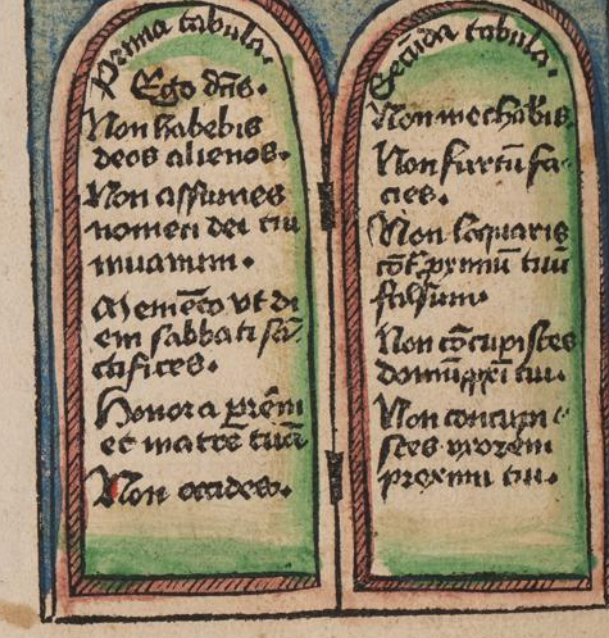 Prima tabula.
Ego dn̄s.
Non habebis
deos alienos.
Non assumes
nomen dei tui
inuanum.
Memēto vt di
em sabbati sā-
ctifices.
Honora prēm
et matrē tuā
Non occides.
Secūda tabula.
Non mechabis.
Non furtū fa-
cies.
Non loquaris
cōt̄ pxmiū tuū
falsum.
Non cōcupisces
domū pxī tui.
Non concupi-
sces vxorem
proximi tui.